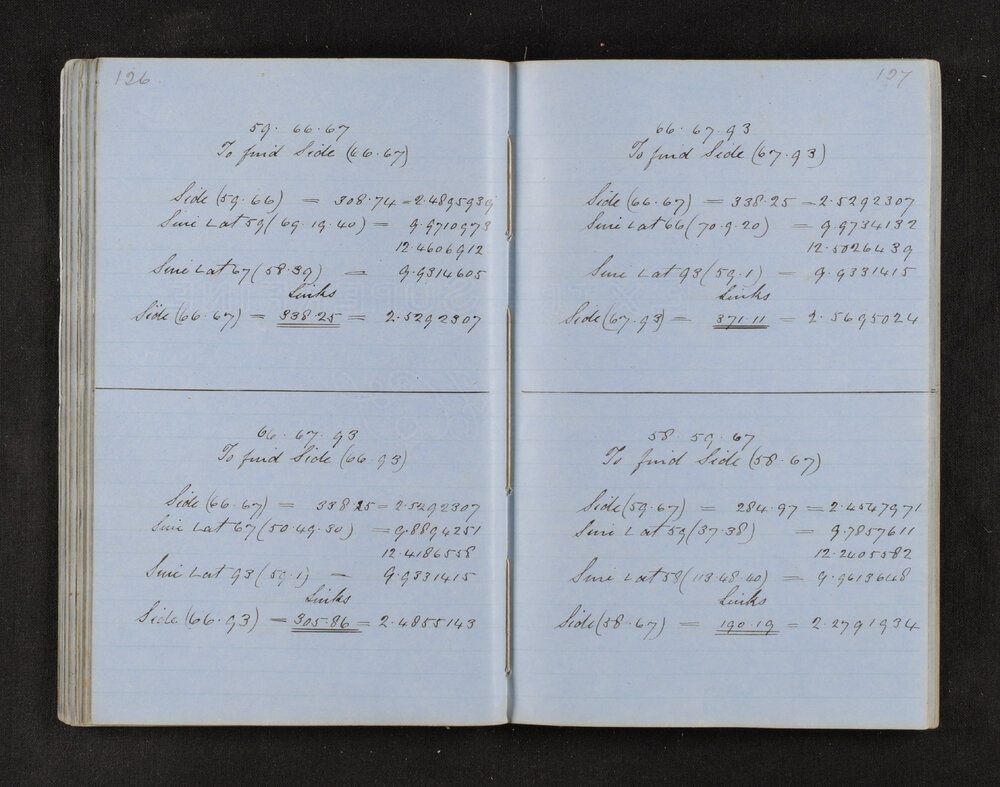 126
59. 66.67
To find Side (66.67)
Side (59.66) = 308.74 = 2.4895939
Sine L at 59 (69.19.40) = 9.9710973
12.4606912
Sine L at 67 (58.39) = 9.9314605
Links
Side (66.67) = 338.25 = 2.5292307
66. 67. 93
To find Side (66.93)
Side (66.67) = 338.25 = 2.5292307
Sine L at 67 (50.49.30) = 9.8894251
12.4186558
Sine L at 93 (59.1) = 9.9331415
Links
Side (66.93) = 305.86 = 2.4855143
127
66. 67. 93
To find Side (67.93)
Side (66.67) = 338.25 = 2.5292307
Sine L at 66 (70.9.20) = 9.9734132
12.5026439
Sine L at 93 (59.1) = 9.9331415
Links
Side (67.93) = 371.11 = 2.5695024
58. 59. 67
To find Side (58.67)
Side (59.67) = 284.97 = 2.4547971
Sine L at 59 (37.38) = 9.7857611
12.2405582
Sine L at 58 (113.48.40) = 9.9613648
Links
Side (58.67) = 190.19 = 2.2791934